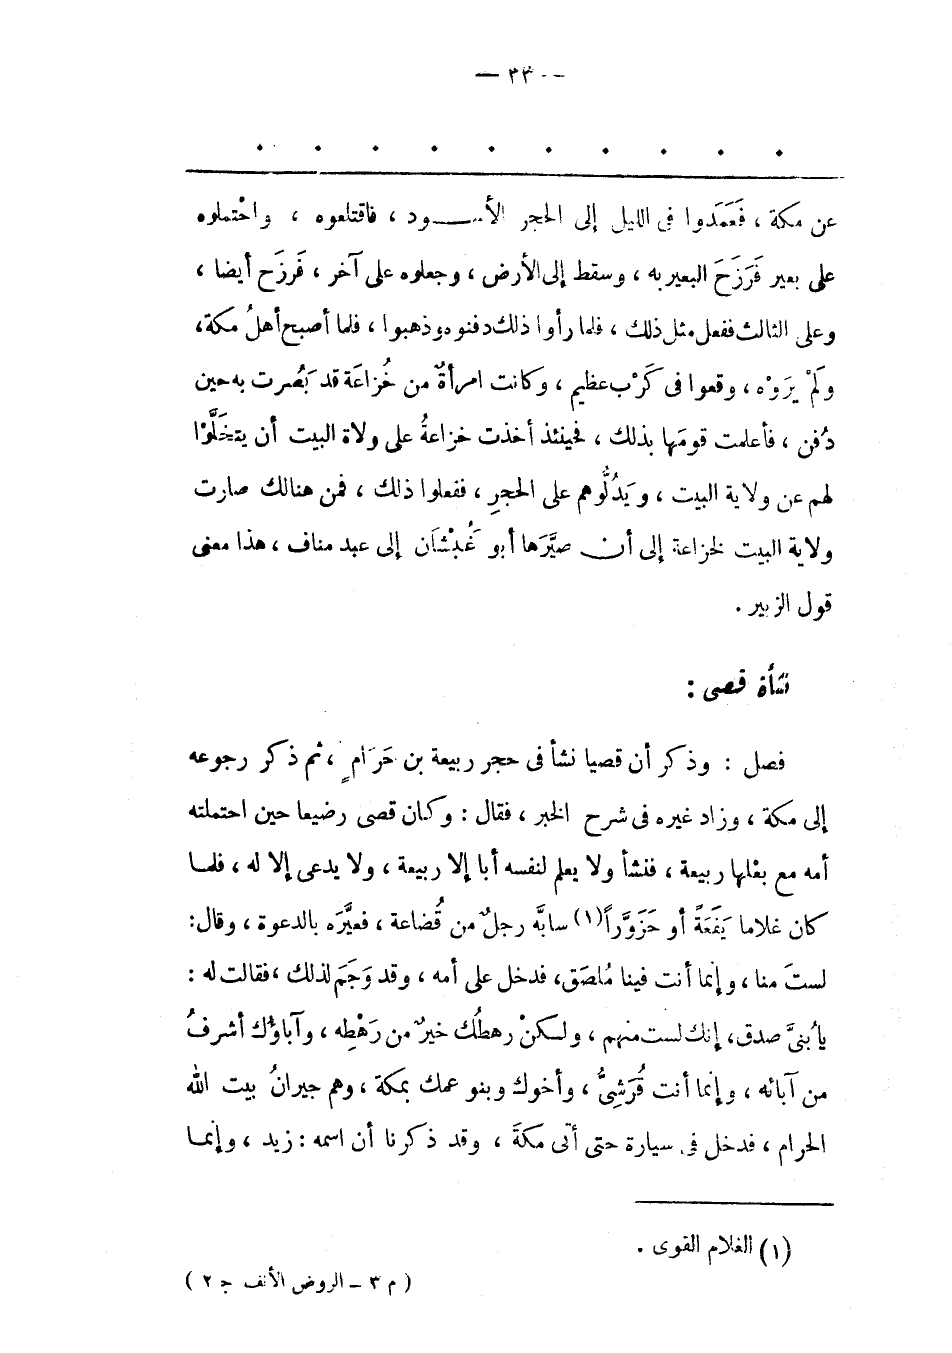 — ٣٣ —
عن مكة ، فَعَمَدوا فى الليل إلى الحجر الأســـود ، فاقتلعوه ، واحْتملوه
على بعير فَرَزَحَ البعير به ، وسقط إلى الأرض ، وجعلوه على آخر ، فَرزَح أيضا ،
وعلى الثالث ففعل مثل ذلك ، فلما رأوا ذلك دفنوه وذهبوا ، فلما أصبح أهلُ مكة،
ولَمْ يَرَوْه ، وقعوا فى كَرْب عظيم ، وكانت امرأةٌ من خُزاعَة قد بَصُرت به حين
دُفن ، فأعلمت قومَها بذلك ، فحينئذ أخذت خزاعةُ على ولاة البيت أن يتخَلَّوْا
لهم عن ولاية البيت ، ويَدُلُّوهم على الحجرِ ، ففعلوا ذلك ، فمن هنالك صارت
ولاية البيت لخزاعة إلى أن صيَّرَها أبو غُبْشَان إلى عبد مناف ، هذا معنى
قول الزبير .
نشأة قصى :
فصل : وذكر أن قصيا نشأ فى حجر ربيعة بن حَرَامٍ ، ثم ذكر رجوعه
إلى مكة ، وزاد غيره فى شرح الخبر ، فقال : وكان قصى رضيعا حين احتملته
أمه مع بعْلها ربيعة ، فنشأ ولا يعلم لنفسه أبا إلا ربيعة ، ولا يدعى إلا له ، فلما
كان غلاما يَفَعَةً أو حَزَوَّراً(١) سابَّه رجلٌ من قُضاعة ، فعيَّرَه بالدعوة ، وقال:
لستَ منا ، وإنما أنت فينا مُلصَق، فدخل على أمه ، وقد وَجَم لذلك ، فقالت له :
يا بُنىَّ صدق، إنك لست منهم ، ولكنْ رهطُك خيرٌ من رَهْطِه ، وآباؤُك أشرفُ
من آبائه ، وإنما أنت قُرَشِىُّ ، وأخوك وبنو عمك بمكة ، وهم جيرانُ بيت الله
الحرام ، فدخل فى سيارة حتى أتى مكةَ ، وقد ذكرنا أن اسمه : زيد ، وإنما
(١) الغلام القوى .
( م ٣ ـ الروض الأنف ج ٢ )